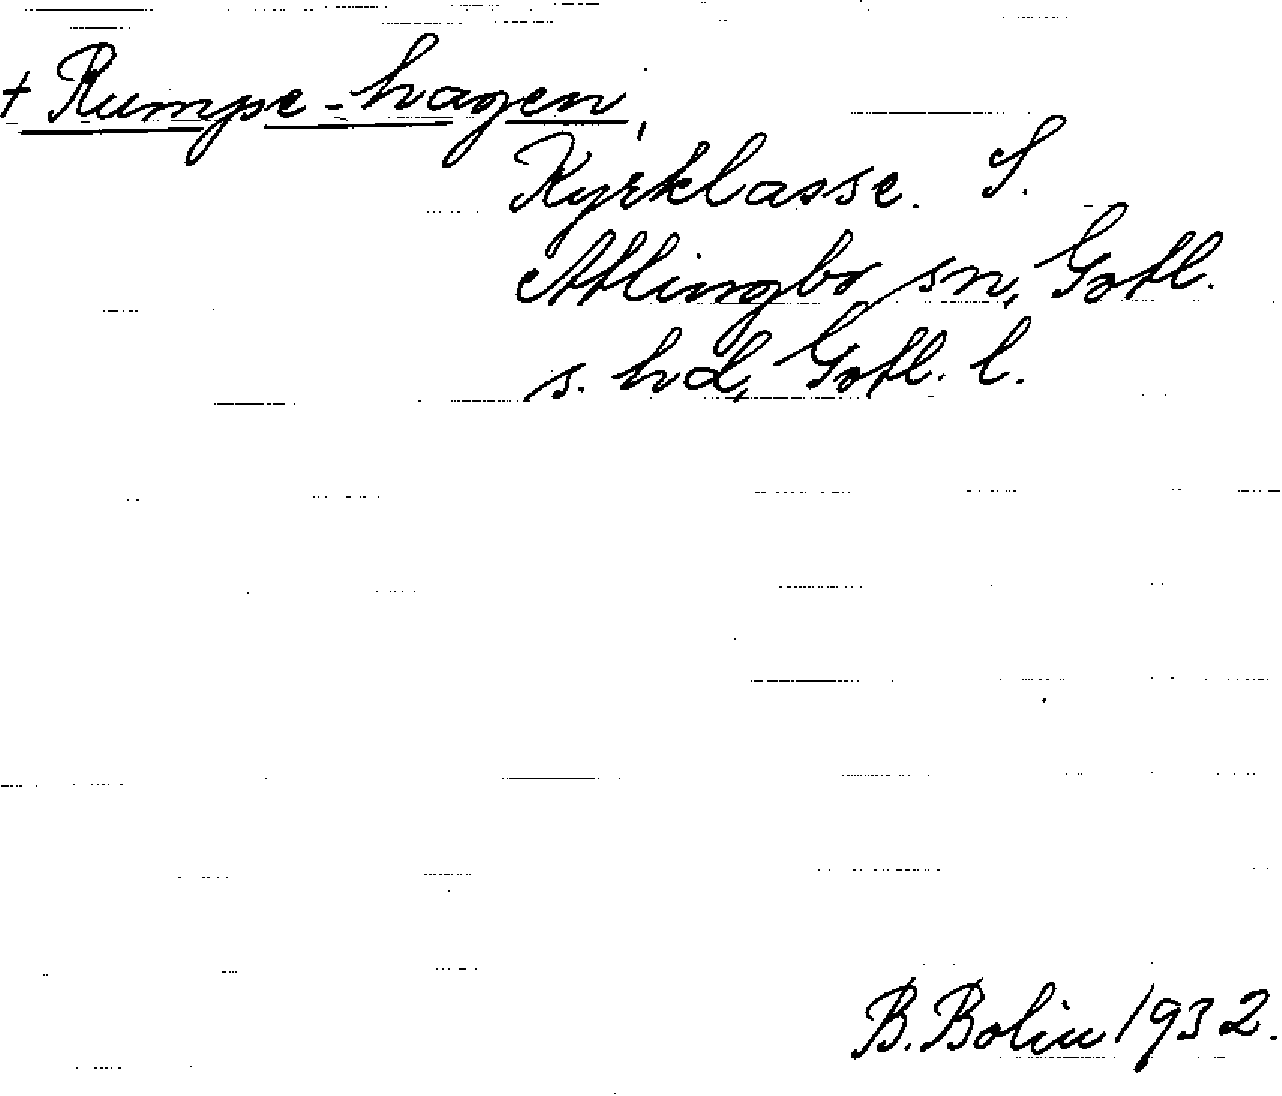 + Rumpe-hagen,
Kyrklasse. S.
Atlingbo sn, Gotl.
s. hd, Gotl. l.
B. Bolin 1932.